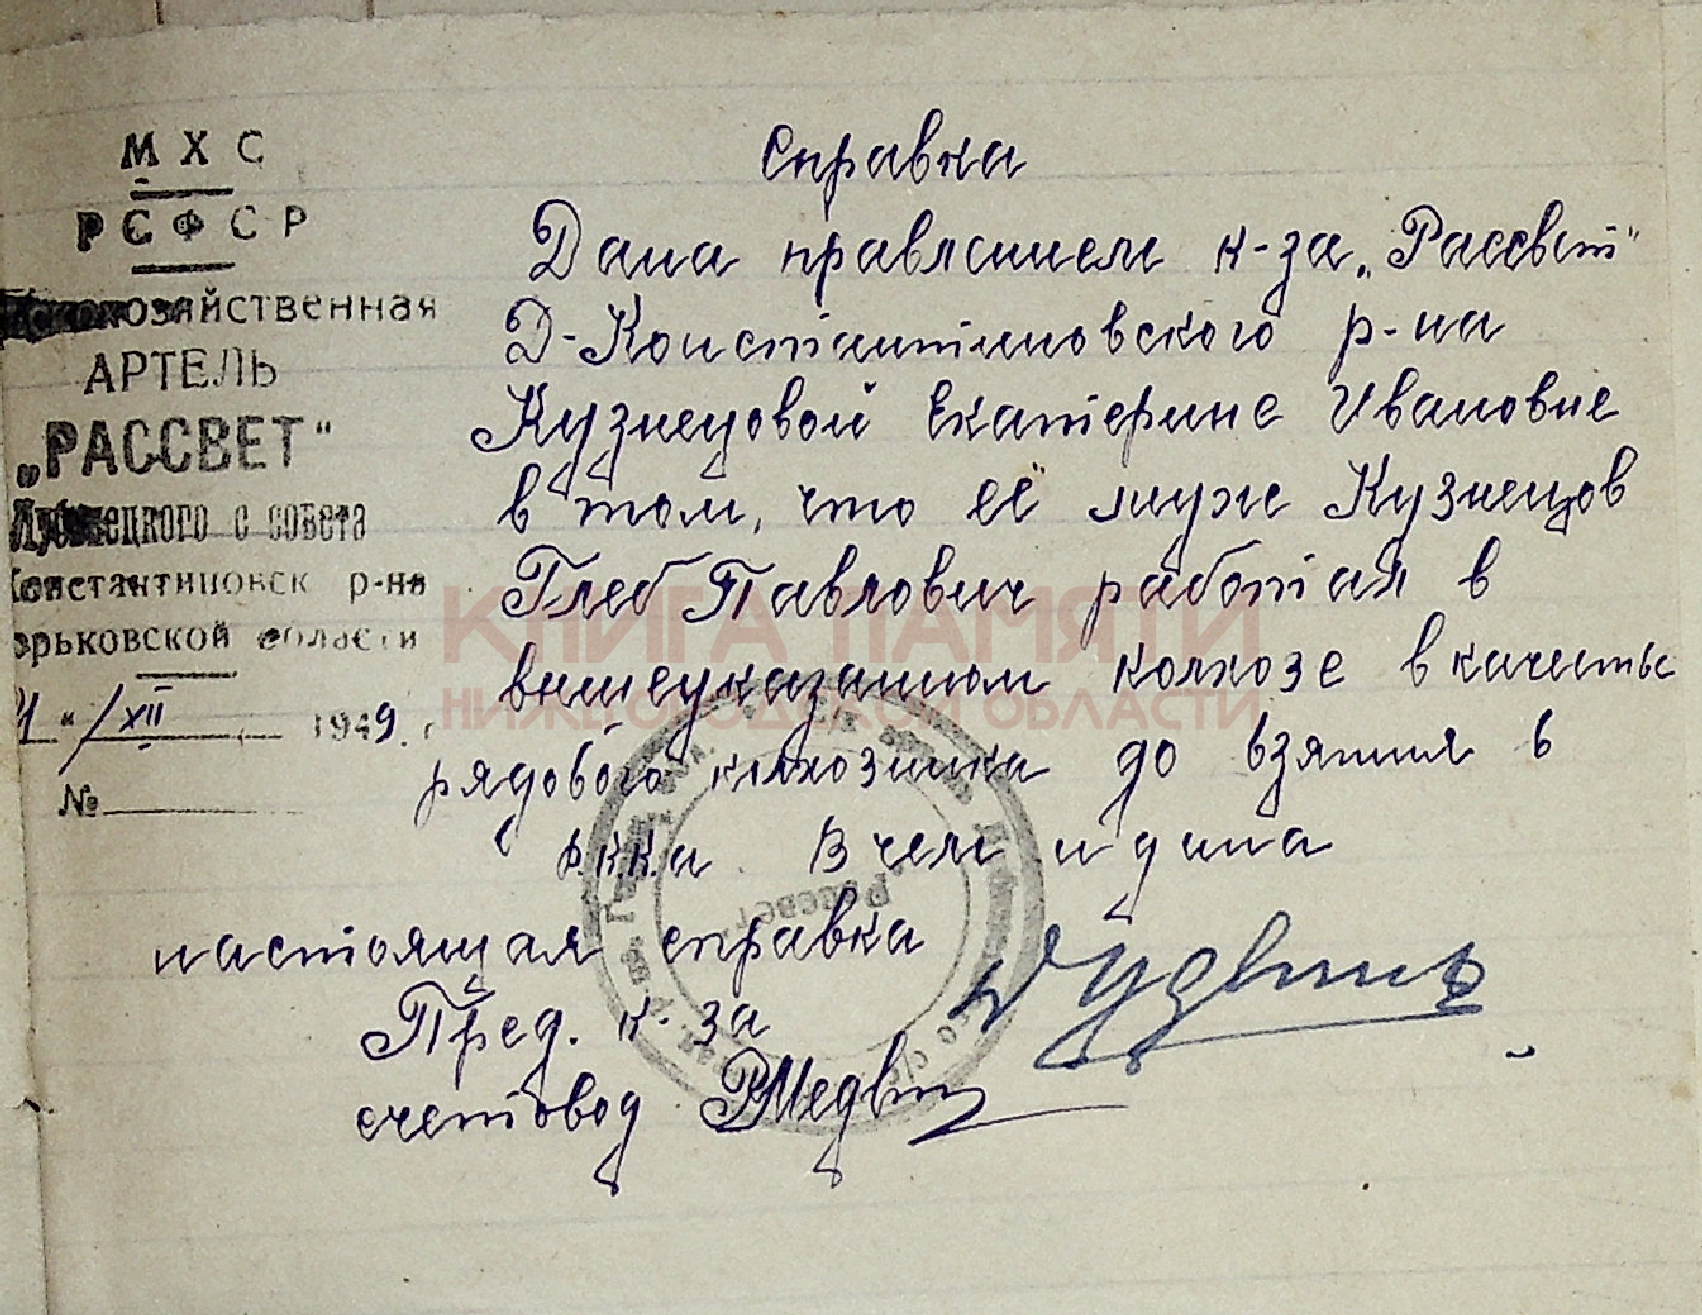 М Х С
Р С Ф С Р
хозяйственная
АРТЕЛЬ
„РАССВЕТ"
с совета
Константиновск р-на
орьковской области
/XII 1949 г
№
Справка
Дана правлением к-за „Рассвет"
Д-Константиновского р-на
Кузнецовой Екатерине Ивановне
в том, что её муж Кузнецов
Глеб Павлович работал в
вышеуказанном колхозе в качестве
рядового колхозника до взятия в
Р.К.К.а В чем и дана
настоящая справка
Пред. к-за
счетовод
Рассвет
КНИГА ПАМЯТИ
НИЖЕГОРОДСКОЙ ОБЛАСТИ